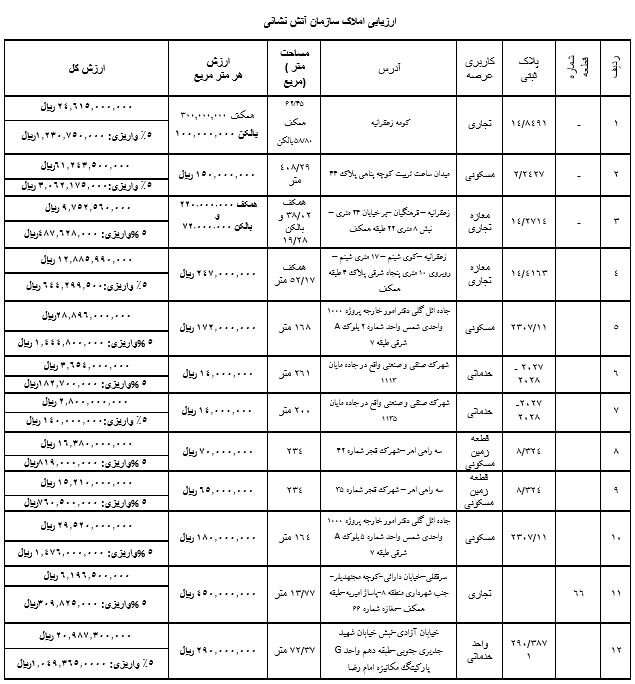 ارزیابی املاک سازمان آتش نشانی
ردیف	شماره قطعه	پلاک ثبتی	کاربری عرصه	آدرس	مساحت متر ( مربع)	ارزش هر متر مربع	ارزش کل
۱	-	۱۴/۸۴۹۱	تجاری	کومه زعفرانیه	۶۲/۴۵ همکف ۵۸/۸۰بالکن	همکف ۳۰۰,۰۰۰,۰۰۰ بالکن ۱۰۰,۰۰۰,۰۰۰	۲۴,۶۱۵,۰۰۰,۰۰۰ ریال
۵٪ واریزی: ۱,۲۳۰,۷۵۰,۰۰۰ریال
۲	-	۲/۲۴۲۷	مسکونی	میدان ساعت تربیت کوچه پناهی پلاک ۴۴	۴۰۸/۲۹ متر	۱۵۰,۰۰۰,۰۰۰ ریال	۶۱,۲۴۳,۵۰۰,۰۰۰ریال
۵٪ واریزی: ۳,۰۶۲,۱۷۵,۰۰۰ ریال
۳	-	۱۴/۲۷۱۴	مغازه تجاری	زعفرانیه –فرهنگیان –بر خیابان ۲۴ متری – نبش ۸ متری ۲۲ طبقه همکف	همکف ۳۸/۰۲ و بالکن ۱۹/۲۸	همکف ۲۲۰,۰۰۰,۰۰۰ و بالکن ۷۲,۰۰۰,۰۰۰	۹,۷۵۲,۵۶۰,۰۰۰ ریال
۵ %واریزی: ۴۸۷,۶۲۸,۰۰۰ ریال
۴	۱۴/۴۱۶۳	مغازه تجاری	زعفرانیه –کوی شبنم – ۱۷ متری شبنم – روبروی ۱۰ متری پنجاه شرقی پلاک ۴ طبقه همکف	همکف ۵۲/۱۷ متر	۲۴۷,۰۰۰,۰۰۰ ریال	۱۲,۸۸۵,۹۹۰,۰۰۰ ریال
۵٪ واریزی: ۶۴۴,۲۹۹,۵۰۰ ریال
۵	۲۳۰۷/۱۱	مسکونی	جاده ائل گلی دفتر امور خارجه پروژه ۱۰۰۰ واحدی شمس واحد شماره ۲ بلوک A شرقی طبقه ۷	۱۶۸ متر	۱۷۲,۰۰۰,۰۰۰ ریال	۲۸,۸۹۶,۰۰۰,۰۰۰ریال
۵ %واریزی: ۱,۴۴۴,۸۰۰,۰۰۰ ریال
۶	۲۰۲۷ - ۲۰۲۸	خدماتی	شهرک صنفی و صنعتی واقع در جاده مایان ۱۱۱۳	۲۶۱ متر	۱۴,۰۰۰,۰۰۰ ریال	۳,۶۵۴,۰۰۰,۰۰۰ ریال
۵ %واریزی: ۱۸۲,۷۰۰,۰۰۰ریال
۷	۲۰۲۷- ۲۰۲۸	خدماتی	شهرک صنفی و صنعتی واقع در جاده مایان ۱۱۳۵	۲۰۰ متر	۱۴,۰۰۰,۰۰۰ ریال	۲,۸۰۰,۰۰۰,۰۰۰ ریال
۵٪ واریزی: ۱۴۰,۰۰۰,۰۰۰ ریال
۸	۸/۳۲۴	قطعه زمین مسکونی	سه راهی اهر –شهرک قجر شماره ۴۲	۲۳۴	۷۰,۰۰۰,۰۰۰ ریال	۱۶,۳۸۰,۰۰۰,۰۰۰ ریال
۵ %واریزی: ۸۱۹,۰۰۰,۰۰۰ریال
۹	۸/۳۲۴	قطعه زمین مسکونی	سه راهی اهر –شهرک قجر شماره ۳۵	۲۳۴	۶۵,۰۰۰,۰۰۰ ریال	۱۵,۲۱۰,۰۰۰,۰۰۰ ریال
۵ %واریزی: ۷۶۰,۵۰۰,۰۰۰ریال
۱۰	۲۳۰۷/۱۱	مسکونی	جاده ائل گلی دفتر امور خارجه پروژه ۱۰۰۰ واحدی شمس واحد شماره ۵ بلوک A شرقی طبقه ۷	۱۶۴ متر	۱۸۰,۰۰۰,۰۰۰ ریال	۲۹,۵۲۰,۰۰۰,۰۰۰ ریال
۵ %واریزی: ۱,۴۷۶,۰۰۰,۰۰۰ ریال
۱۱	۶۶	تجاری	سرقفلی–خیابان دارائی–کوچه مجتهدیلر– جنب شهرداری منطقه ۸–پاساژ امیریه–طبقه همکف –مغازه شماره ۶۶	۱۳/۷۷ متر	۴۵۰,۰۰۰,۰۰۰ ریال	۶,۱۹۶,۵۰۰,۰۰۰ ریال
۵ %واریزی: ۳۰۹,۸۲۵,۰۰۰ریال
۱۲	۲۹۰/۳۸۷۱	واحد خدماتی	خیابان آزادی–نبش خیابان شهید جدیری جنوبی–طبقه دهم واحد G پارکینگ مکانیزه امام رضا	۷۲/۳۷ متر	۲۹۰,۰۰۰,۰۰۰ ریال	۲۰,۹۸۷,۳۰۰,۰۰۰ ریال
۵٪ واریزی: ۱,۰۴۹,۳۶۵,۰۰۰۰ریال